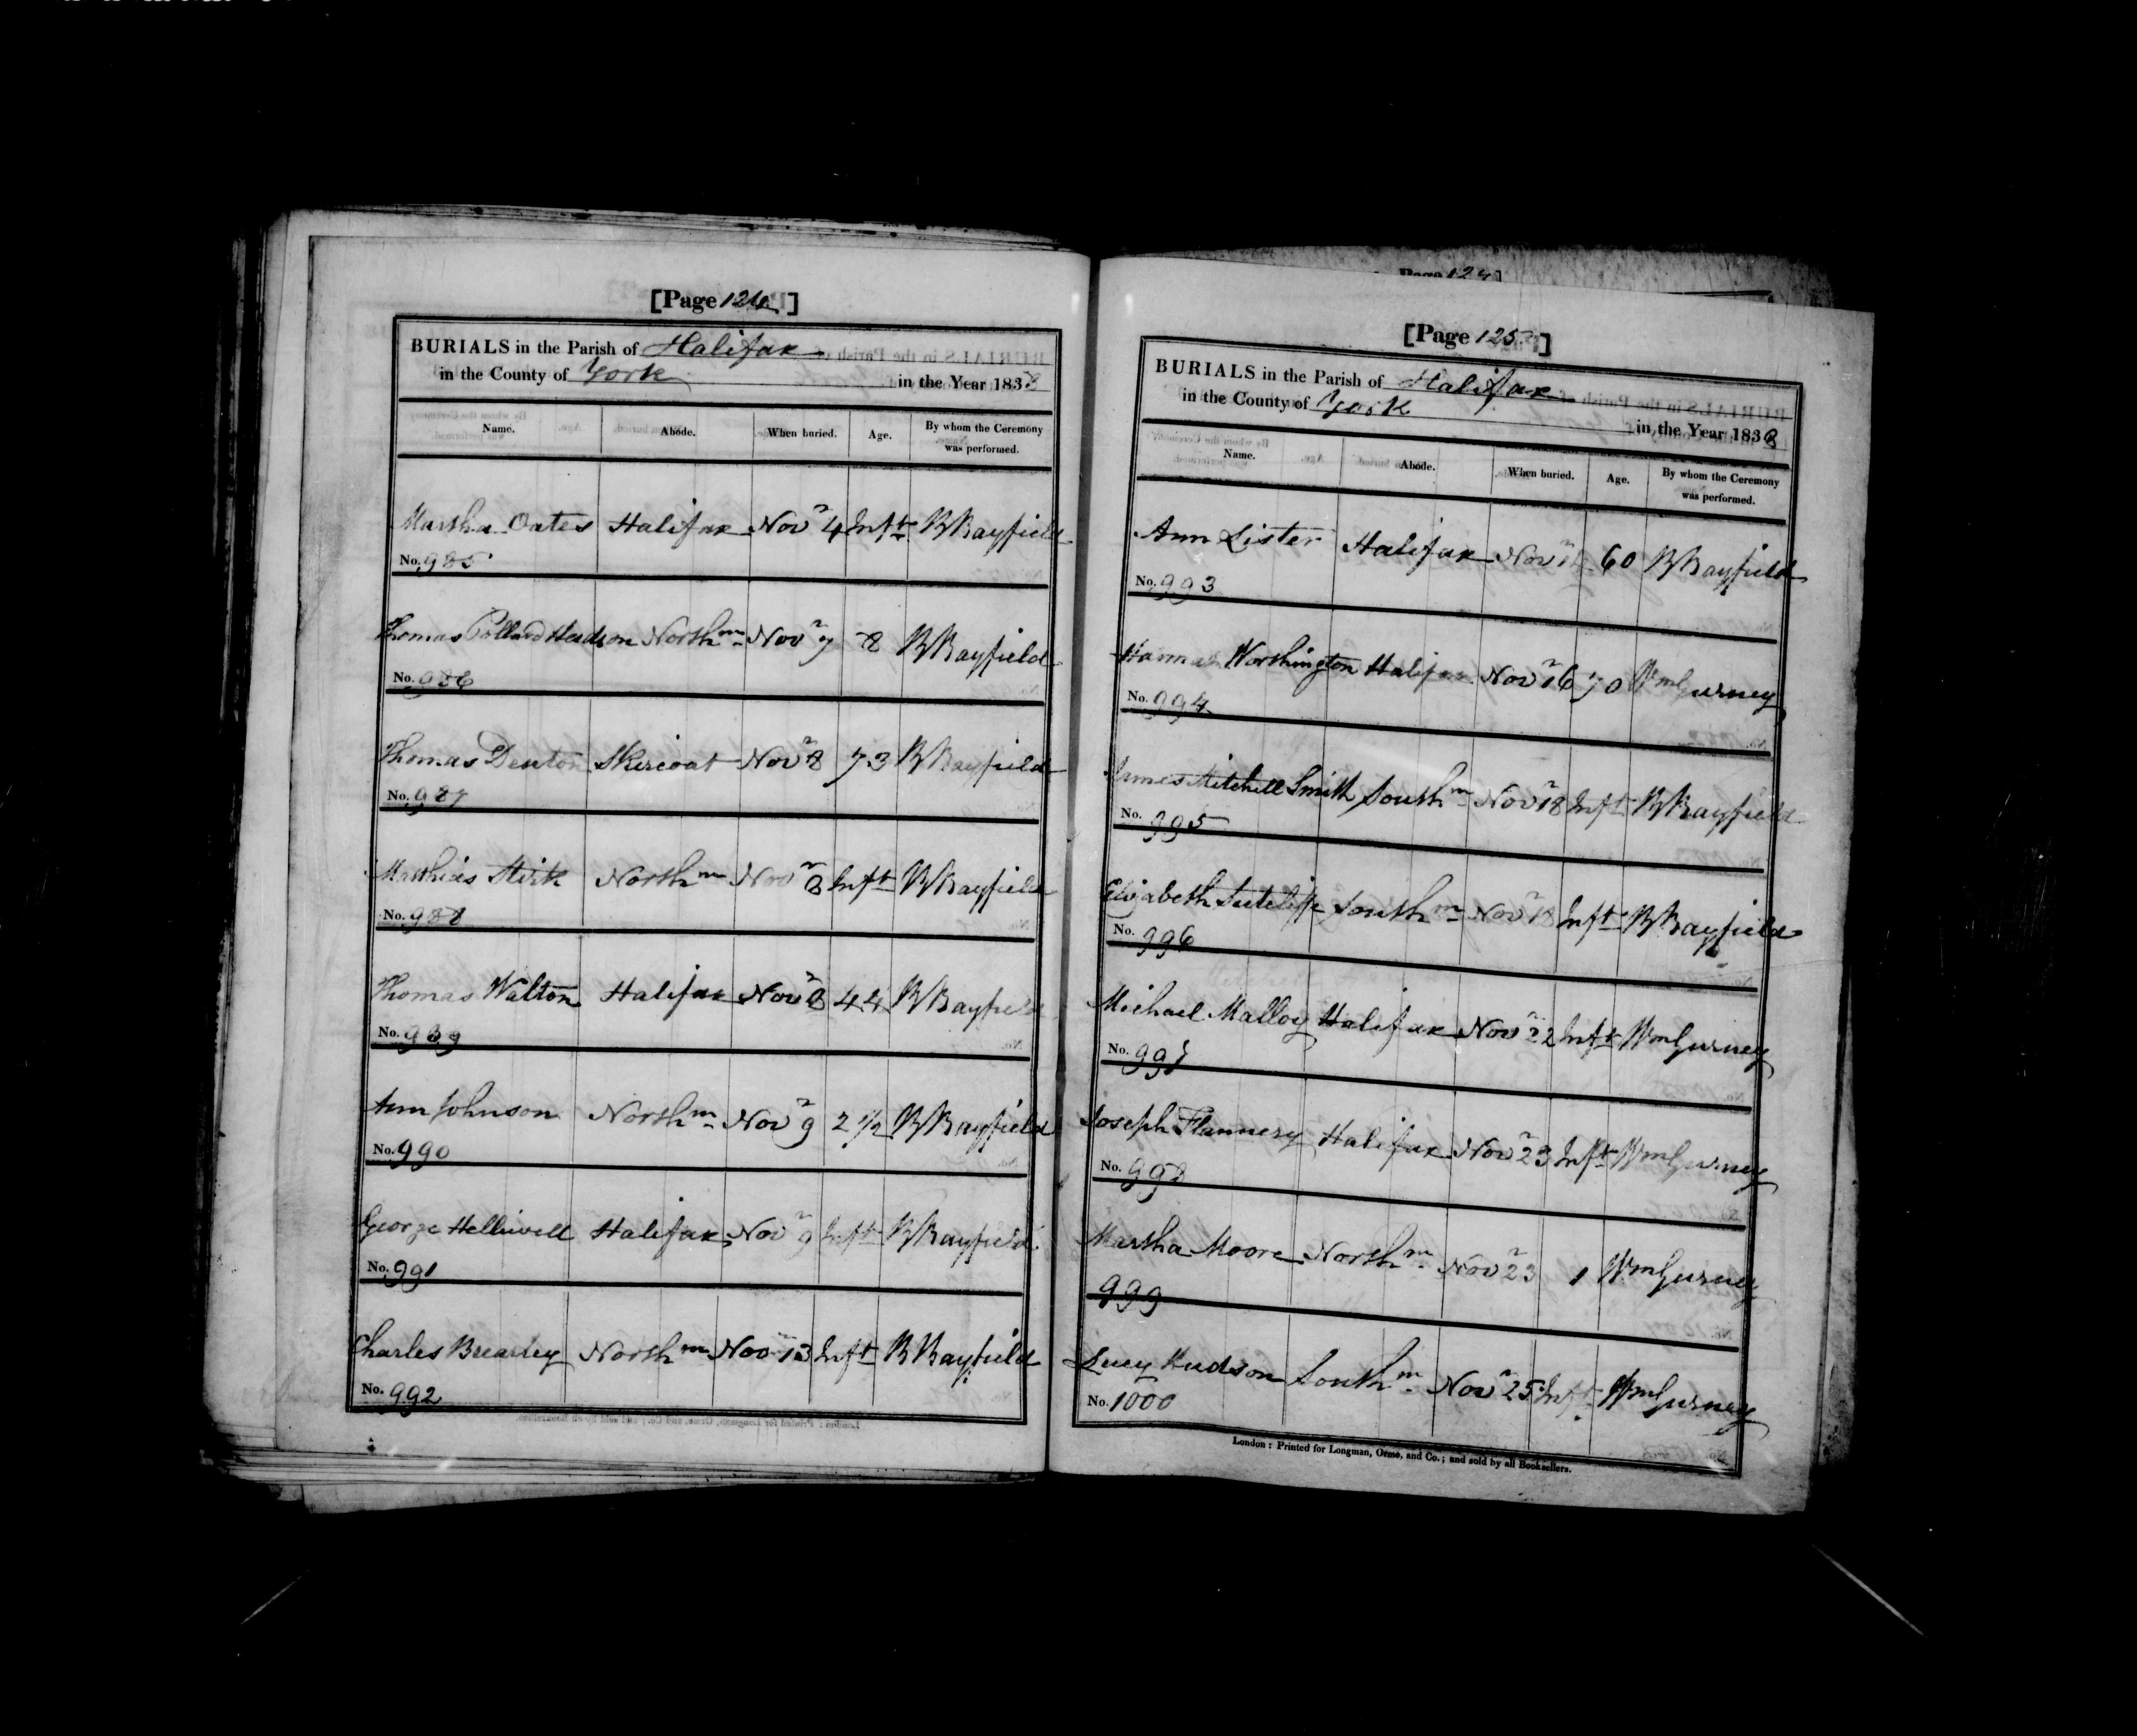 [Page 124]
BURIALS in the Parish of Halifax
in the County of York in the Year 1838
Name. Abode. When buried. Age. By whom the Ceremony was performed.
Martha Oates Halifax Novr 4 Inft BBayfield
No. 985
Thomas Pollard Hudson Northm Novr 7 8 BBayfield
No. 986
Thomas Denton Skircoat Novr 8 73 BBayfield
No. 987
Matthias Stirk Northm Novr 8 Inft BBayfield
No. 988
Thomas Walton Halifax Novr 8 44 BBayfield
No. 989
Ann Johnson Northm Novr 9 2 1/2 BBayfield
No. 990
George Helliwell Halifax Novr 9 Inft BBayfield
No. 991
Charles Brearley Northm Nov 13 Inft BBayfield
No. 992
[Page 125]
BURIALS in the Parish of Halifax
in the County of York in the Year 1838
Name. Abode. When buried. Age. By whom the Ceremony was performed.
Ann Lister Halifax Novr 60 BBayfield
No. 993
Hannah Worthington Halifax Novr 16 70 WmGurney
No. 994
James Mitchell Smith Southm Novr 18 Inft BBayfield
No. 995
Elizabeth Sutcliffe Southm Novr 18 Inft BBayfield
No. 996
Michael Malloy Halifax Novr 22 Inft WmGurney
No. 997
Joseph Flannery Halifax Novr 23 Inft WmGurney
No. 998
Martha Moore Northm Novr 23 1 WmGurney
999
Lucy Hudson Southm Novr 25 Inft WmGurney
No. 1000
London: Printed for Longman, Orme, and Co.; and sold by all Booksellers.